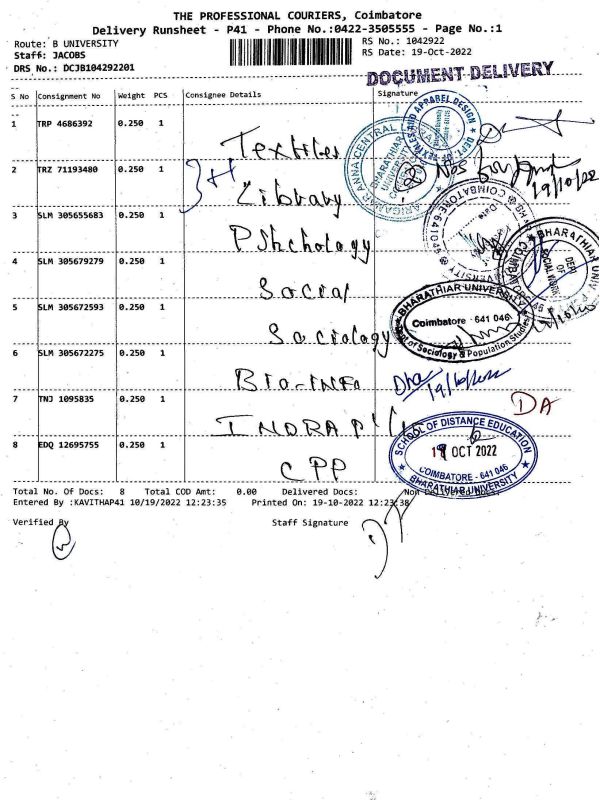 THE PROFESSIONAL COURIERS, Coimbatore
Delivery Runsheet - P41 - Phone No.:0422-3505555 - Page No.:1
Route: B UNIVERSITY
Staff: JACOBS
DRS No.: DCJB104292201
RS No.: 1042922
RS Date: 19-Oct-2022
DOCUMENT DELIVERY
S No Consignment No Weight PCS Consignee Details Signature
1 TRP 4686392 0.250 1 Textiles
2 TRZ 71193480 0.250 1 Library
19/10/22
3 SLM 305655683 0.250 1 PShchology
4 SLM 305679279 0.250 1 Social
5 SLM 305672593 0.250 1 Sociology
BHARATHIAR UNIVERSITY
Coimbatore - 641 046
Dept of Sociology & Population Studies
6 SLM 305672275 0.250 1 BIO-INFO
19/10/2022
7 TNJ 1095835 0.250 1 INDRA P
DA
8 EDQ 12695755 0.250 1 CPP
SCHOOL OF DISTANCE EDUCATION
19 OCT 2022
COIMBATORE - 641 046
BHARATHIAR UNIVERSITY
Total No. Of Docs: 8 Total COD Amt: 0.00 Delivered Docs: Non Delivered Docs:
Entered By :KAVITHAP41 10/19/2022 12:23:35 Printed On: 19-10-2022 12:23:38
Verified By Staff Signature